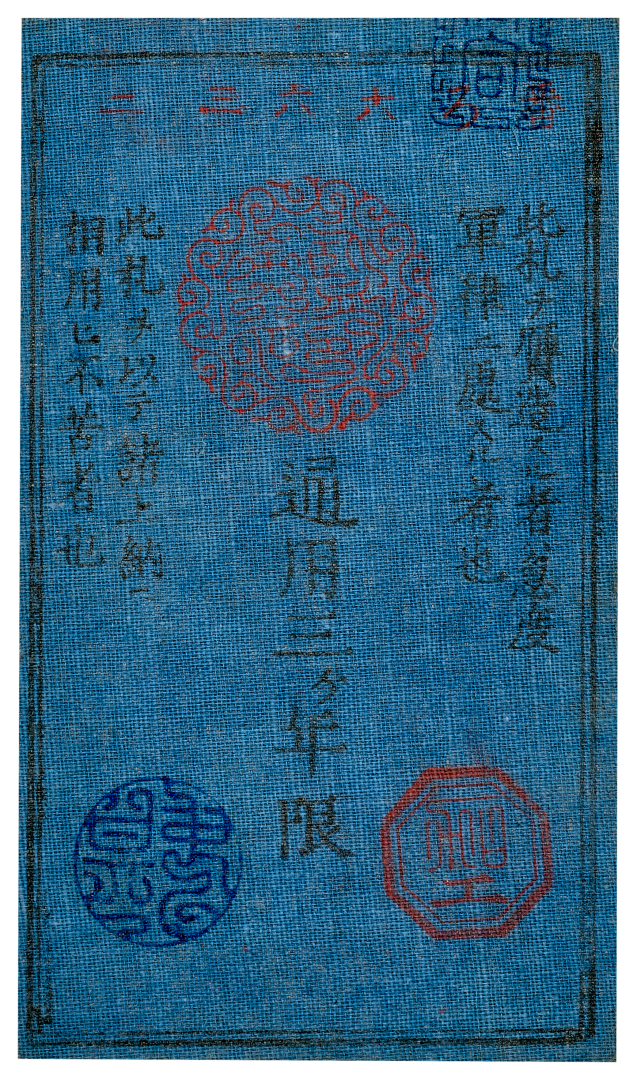 六六三二
此札ヲ贋造スル者急度
軍律ニ處スル者也
通用三ヶ年限
此札ヲ以テ諸上納ニ
相用ヒ不苦者也